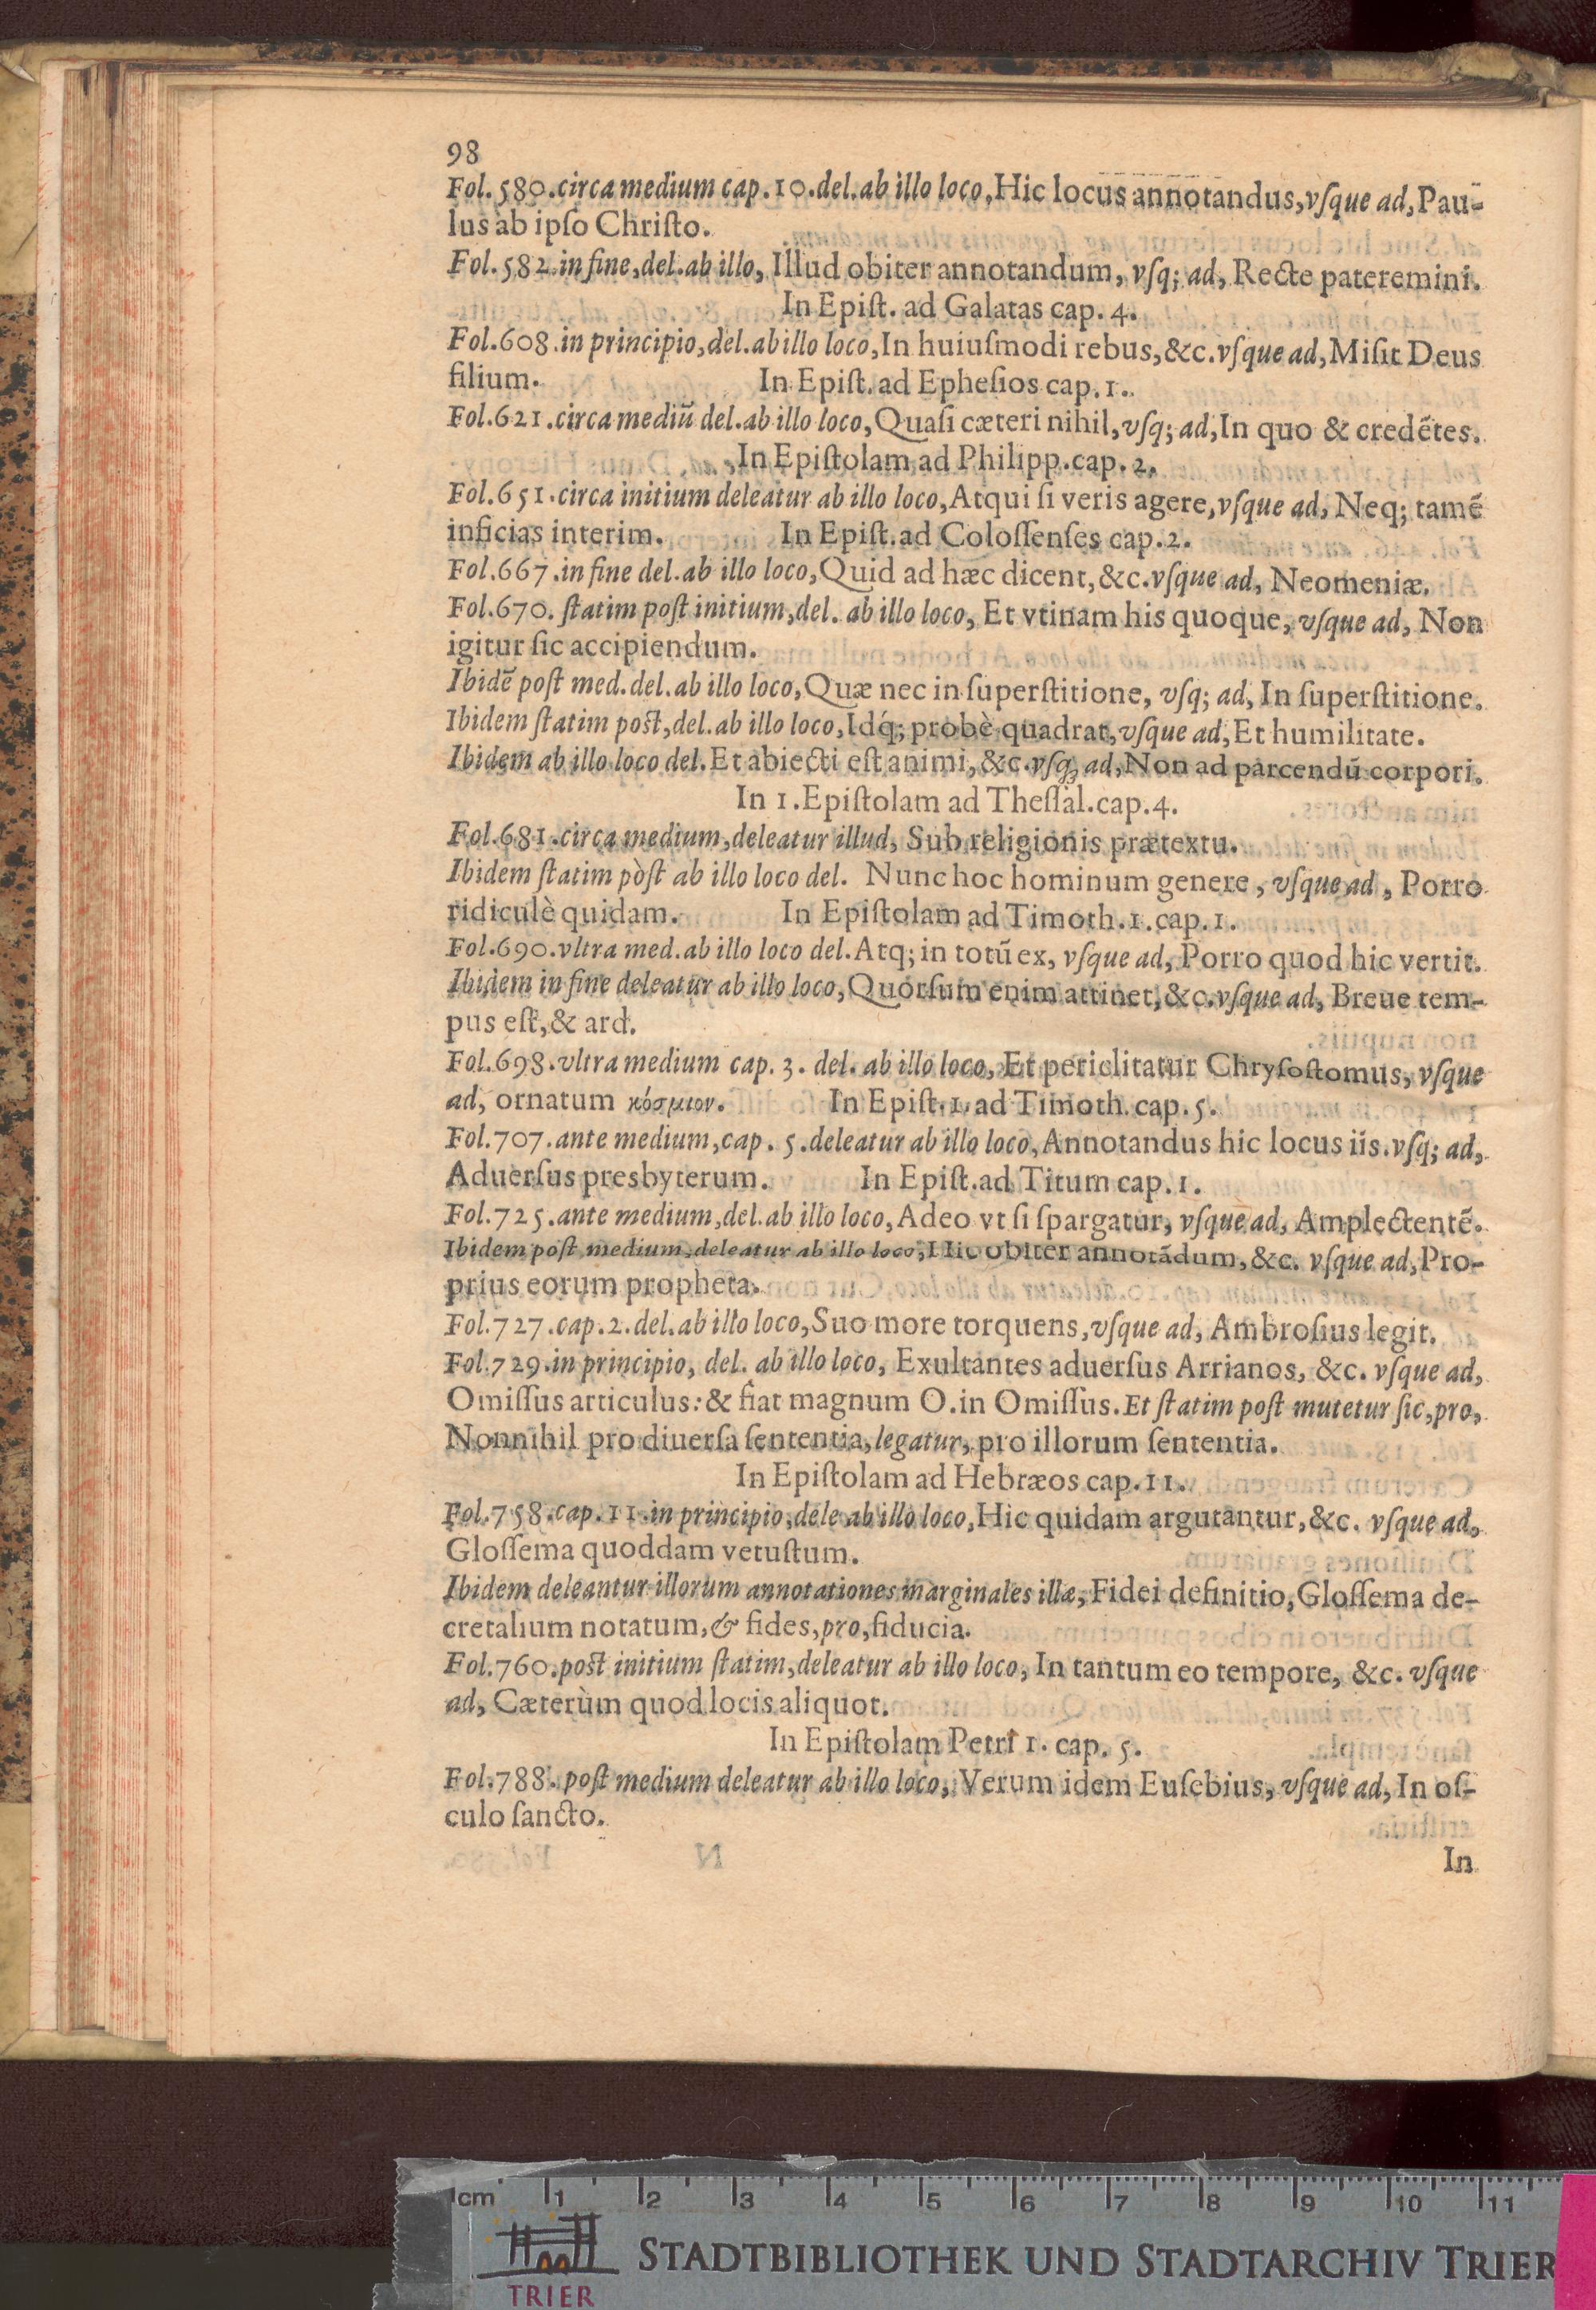 98
Fol. 580. circa medium cap. 10. del. ab illo loco, Hic locus annotandus, vſque ad, Pau-
lus ab ipſo Chriſto.
Fol. 582. in fine, del. ab illo, Illud obiter annotandum, vſq; ad, Recte pateremini.
In Epiſt. ad Galatas cap. 4.
Fol. 608. in principio, del. ab illo loco, In huiuſmodi rebus, &c. vſque ad, Miſit Deus
filium. In Epiſt. ad Epheſios cap. 1.
Fol. 621. circa mediū del. ab illo loco, Quaſi cæteri nihil, vſq; ad, In quo & credētes.
In Epiſtolam ad Philipp. cap. 2.
Fol. 651. circa initium deleatur ab illo loco, Atqui ſi veris agere, vſque ad, Neq; tamē
inficias interim. In Epiſt. ad Coloſſenſes cap. 2.
Fol. 667. in fine del. ab illo loco, Quid ad hæc dicent, &c. vſque ad, Neomeniæ.
Fol. 670. ſtatim poſt initium, del. ab illo loco, Et vtinam his quoque, vſque ad, Non
igitur ſic accipiendum.
Ibidē poſt med. del. ab illo loco, Quæ nec in ſuperſtitione, vſq; ad, In ſuperſtitione.
Ibidem ſtatim poſt, del. ab illo loco, Idq́; probè quadrat, vſque ad, Et humilitate.
Ibidem ab illo loco del. Et abiecti eſt animi, &c. vſq; ad, Non ad parcendū corpori.
In 1. Epiſtolam ad Theſſal. cap. 4.
Fol. 681. circa medium, deleatur illud, Sub religionis prætextu.
Ibidem ſtatim pòſt ab illo loco del. Nunc hoc hominum genere, vſque ad, Porro
ridiculè quidam. In Epiſtolam ad Timoth. 1. cap. 1.
Fol. 690. vltra med. ab illo loco del. Atq; in totū ex, vſque ad, Porro quod hic vertit.
Ibidem in fine deleatur ab illo loco, Quorſum enim attinet, &c. vſque ad, Breue tem-
pus eſt, & ard.
Fol. 698. vltra medium cap. 3. del. ab illo loco, Et periclitatur Chryſoſtomus, vſque
ad, ornatum κόσμιον. In Epiſt. 1. ad Timoth. cap. 5.
Fol. 707. ante medium, cap. 5. deleatur ab illo loco, Annotandus hic locus iis. vſq; ad,
Aduerſus presbyterum. In Epiſt. ad Titum cap. 1.
Fol. 725. ante medium, del. ab illo loco, Adeo vt ſi ſpargatur, vſque ad, Amplectentē.
Ibidem poſt medium, deleatur ab illo loco, Hic obiter annotādum, &c. vſque ad, Pro-
prius eorum propheta.
Fol. 727. cap. 2. del. ab illo loco, Suo more torquens, vſque ad, Ambroſius legit.
Fol. 729. in principio, del. ab illo loco, Exultantes aduerſus Arrianos, &c. vſque ad,
Omiſſus articulus: & fiat magnum O. in Omiſſus. Et ſtatim poſt mutetur ſic, pro,
Nonnihil pro diuerſa ſententia, legatur, pro illorum ſententia.
In Epiſtolam ad Hebræos cap. 11.
Fol. 758. cap. 11. in principio, dele ab illo loco, Hic quidam argutantur, &c. vſque ad,
Gloſſema quoddam vetuſtum.
Ibidem deleantur illorum annotationes marginales illæ, Fidei definitio, Gloſſema de-
cretalium notatum, & fides, pro, fiducia.
Fol. 760. poſt initium ſtatim, deleatur ab illo loco, In tantum eo tempore, &c. vſque
ad, Cæterùm quod locis aliquot.
In Epiſtolam Petri 1. cap. 5.
Fol. 788. poſt medium deleatur ab illo loco, Verum idem Euſebius, vſque ad, In oſ-
culo ſancto.
In
cm 1 2 3 4 5 6 7 8 9 10 11
STADTBIBLIOTHEK UND STADTARCHIV TRIER
TRIER